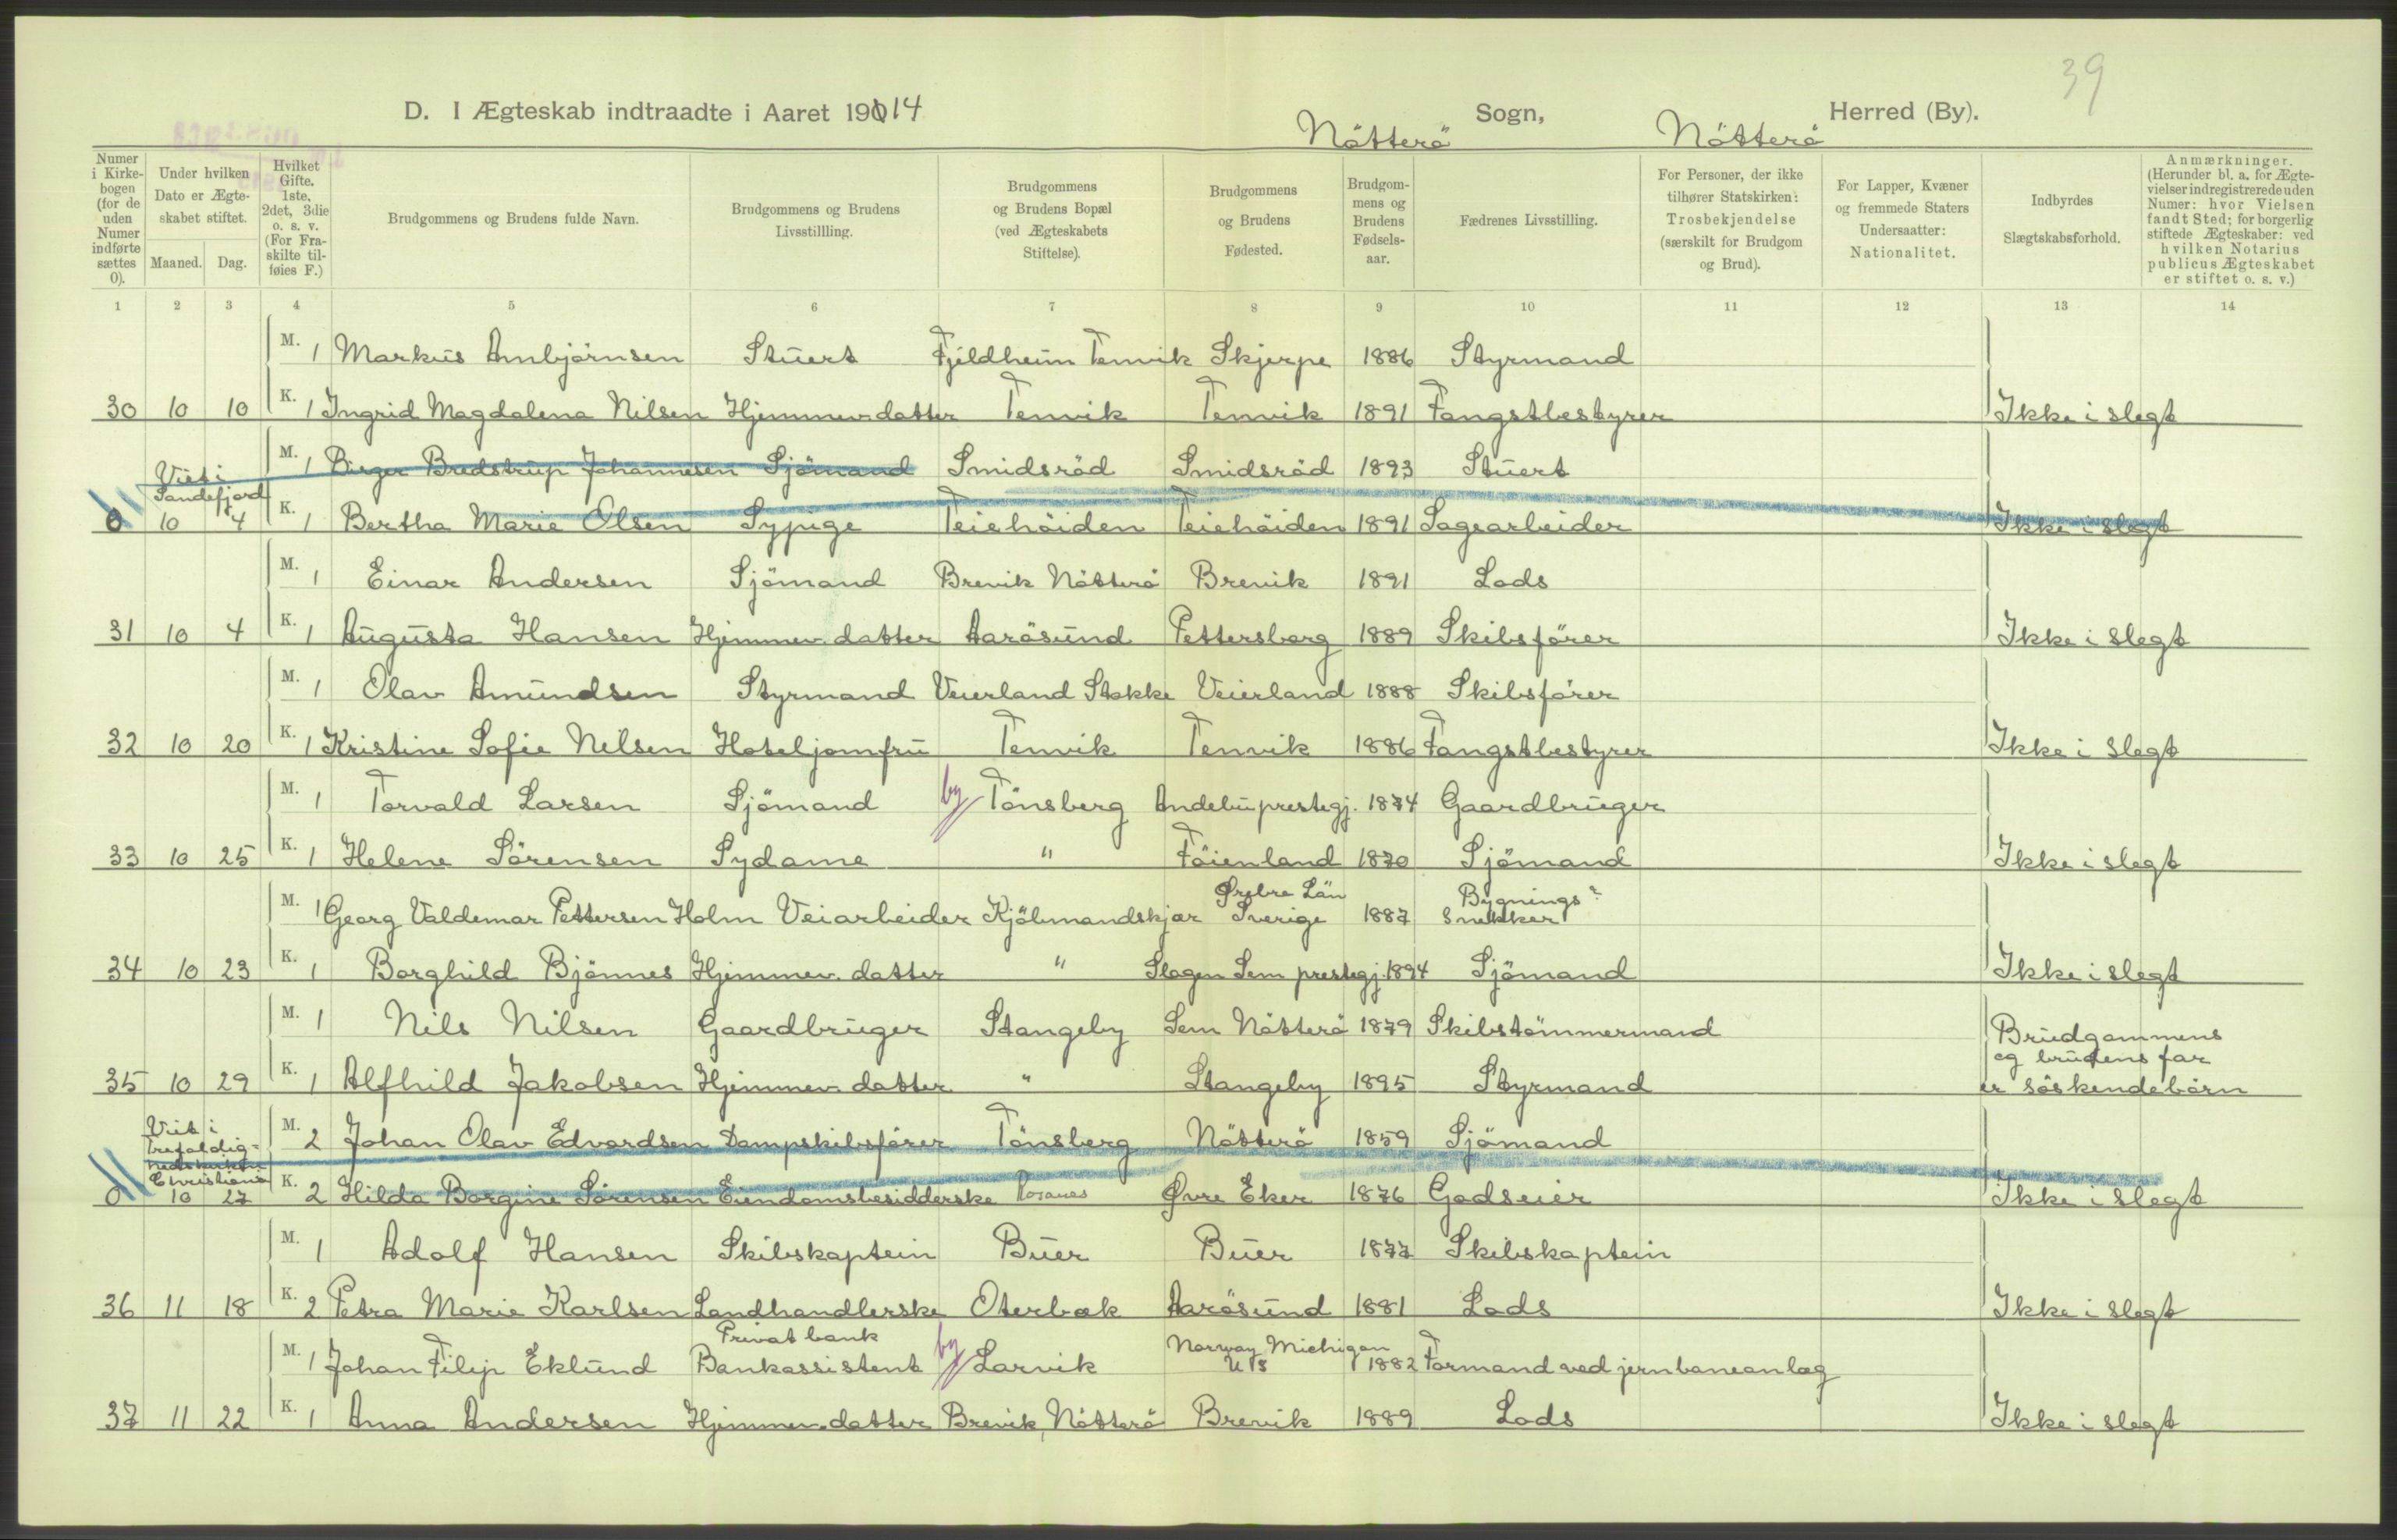 39
D. I Ægteskab indtraadte i Aaret 1914 Nötterö Sogn, Nötterö Herred (By).
Numer i Kirkebogen (for de uden Numer indførte sættes 0).
Under hvilken Dato er Ægteskabet stiftet.
Maaned. Dag.
Hvilket Gifte. 1ste, 2det, 3die o. s. v. (For Fraskilte tilføies F.)
Brudgommens og Brudens fulde Navn.
Brudgommens og Brudens Livsstillling.
Brudgommens og Brudens Bopæl (ved Ægteskabets Stiftelse).
Brudgommens og Brudens Fødested.
Brudgommens og Brudens Fødselsaar.
Fædrenes Livsstilling.
For Personer, der ikke tilhører Statskirken: Trosbekjendelse (særskilt for Brudgom og Brud).
For Lapper, Kvæner og fremmede Staters Undersaatter: Nationalitet.
Indbyrdes Slægtskabsforhold.
Anmærkninger. (Herunder bl. a. for Ægtevielser indregistrerede uden Numer: hvor Vielsen fandt Sted; for borgerlig stiftede Ægteskaber: ved hvilken Notarius publicus Ægteskabet er stiftet o. s. v.)
1 2 3 4 5 6 7 8 9 10 11 12 13 14
M. 1 Markus Arnbjörnsen Stuert Fjeldheim Tenvik Skjerpe 1886 Styrmand
30 10 10 K. 1 Ingrid Magdalena Nilsen Hjemmev. datter Tenvik Tenvik 1891 Fangstbestyrer Ikke i slegt
M. 1 Birger Bredstrup Johannesen Sjömand Smidsröd Smidsröd 1893 Stuert
Viet i Sandefjord
0 10 4 K. 1 Bertha Marie Olsen Sypige Teiehöiden Teiehöiden 1891 Sagearbeider Ikke i slegt
M. 1 Einar Andersen Sjömand Brevik Nötterö Brevik 1891 Lods
31 10 4 K. 1 Augusta Hansen Hjemmev. datter Aarösund Pettersborg 1889 Skibsförer Ikke i slegt
M. 1 Olav Amundsen Styrmand Veierland Stokke Veierland 1888 Skibsförer
32 10 20 K. 1 Kristine Sofie Nilsen Hoteljomfru Tenvik Tenvik 1886 Fangstbestyrer Ikke i slegt
M. 1 Torvald Larsen Sjömand by Tönsberg Andebu prestegj. 1874 Gaardbruger
33 10 25 K. 1 Helene Sörensen Sydame " Föienland 1870 Sjömand Ikke i slegt
M. 1 Georg Valdemar Pettersen Holm Veiarbeider Kjöbmandskjær Ørebro Län Sverige 1887 Bygnings? snekker
34 10 23 K. 1 Borghild Bjönnes Hjemmev. datter " Slagen Sem prestegj. 1894 Sjömand Ikke i slegt
M. 1 Nils Nilsen Gaardbruger Stangeby Sem Nötterö 1879 Skibstömmermand Brudgommens
35 10 29 K. 1 Alfhild Jakobsen Hjemmev. datter " Stangeby 1895 Styrmand og brudens far er söskendebörn
M. 2 Johan Olav Edvardsen Dampskibsförer Tönsberg Nötterö 1859 Sjömand
Viet i Trefoldighedskirken Christiania
0 10 27 K. 2 Hilda Borgine Sörensen Eiendomsbesidderske Rosanes Øvre Eker 1876 Godseier Ikke i slegt
M. 1 Adolf Hansen Skibskaptein Buer Buer 1877 Skibskaptein
36 11 18 K. 2 Petra Marie Karlsen Landhandlerske Oterbæk Aarösund 1881 Lods Ikke i slegt
M. 1 Johan Filip Eklund Privatbank Bankassistent by Larvik Norway Michigan US 1882 Formand ved jernbaneanlæg
37 11 22 K. 1 Anna Andersen Hjemmev. datter Brevik, Nötterö Brevik 1889 Lods Ikke i slegt